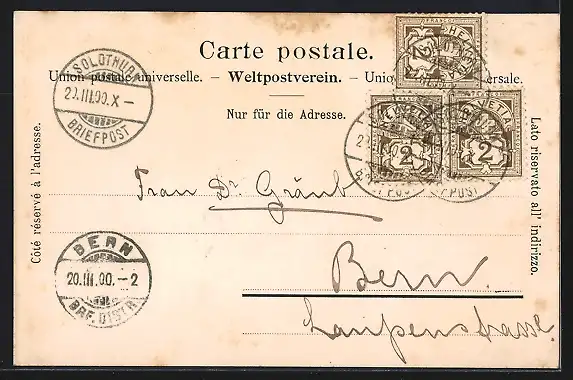 Carte postale.
Union postale universelle. – Weltpostverein. – Unio ersale.
Nur für die Adresse.
Côté réservé à l'adresse.
Lato riservato all' indirizzo.
SOLOTHURN
20.III.00.X–
BRIEFPOST
HELVETIA
2
HELVETIA
2
HELVETIA
2
Frau Dr Gräub
BERN
20.III.00.–2
BRF. DISTR.
Bern.
Laupenstrasse.